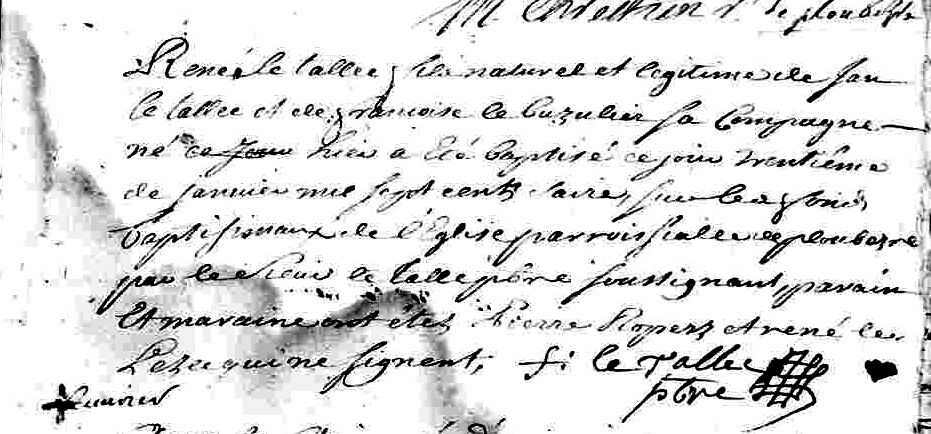 de ploubezre
René le tallec fils naturel et legitime de Jan
le tallec et de francoise le buzulier sa Compagne
né ce jour hier a été baptisé ce jour trentiéme
de janvier mil sept cent saize, sur les fons
baptismaux de l'Eglise parroissialle de ploubezre
par le Sieur le Tallec pbre soussignant parain
Et maraine ont étes Pierre Ropers et rené le
qui ne signent, le Tallec
pbre